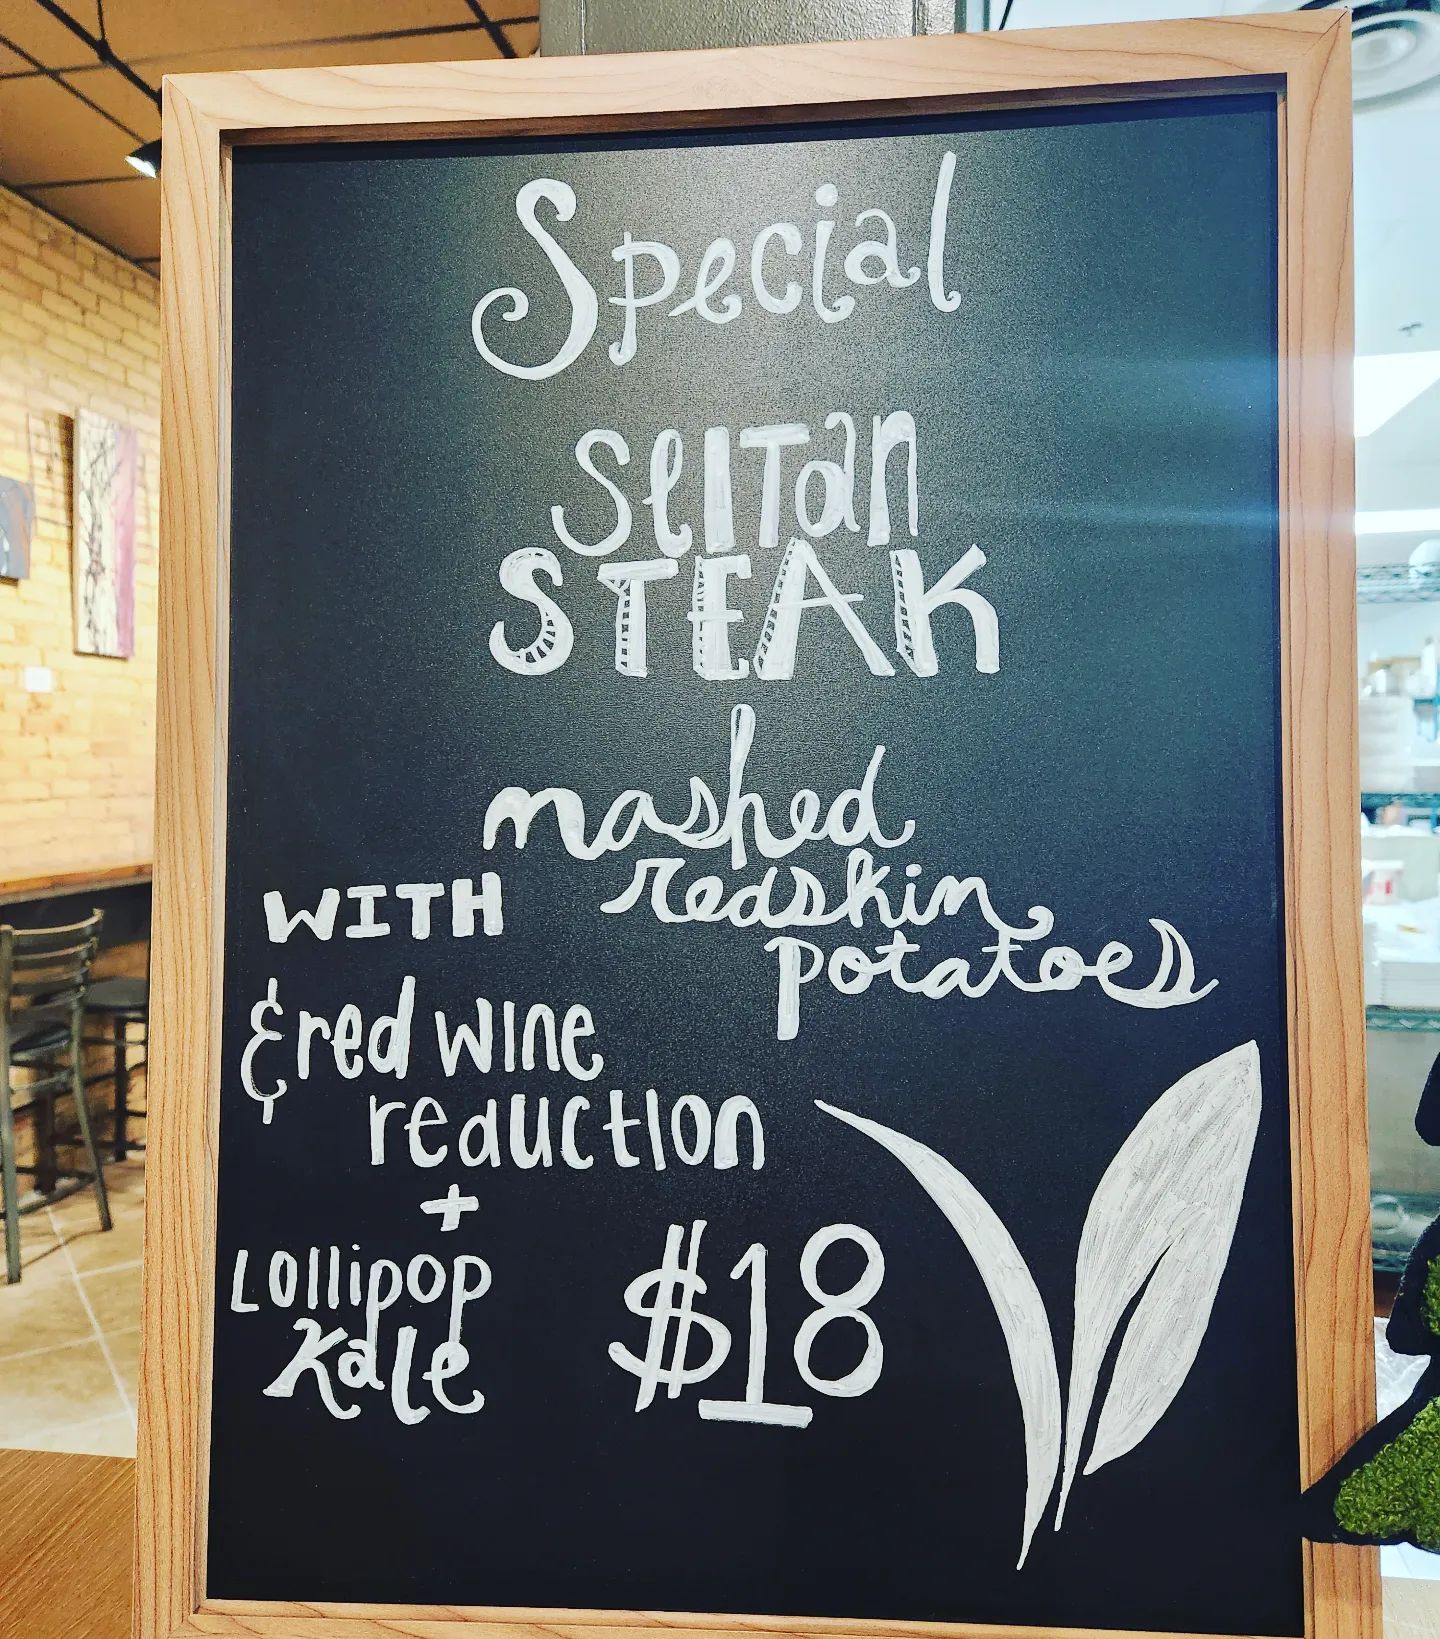 Special
SeITan
STEAK
WITH mashed
redskin
potatoes
& red wIne
reductIon
+
Lollipop
Kale
$18